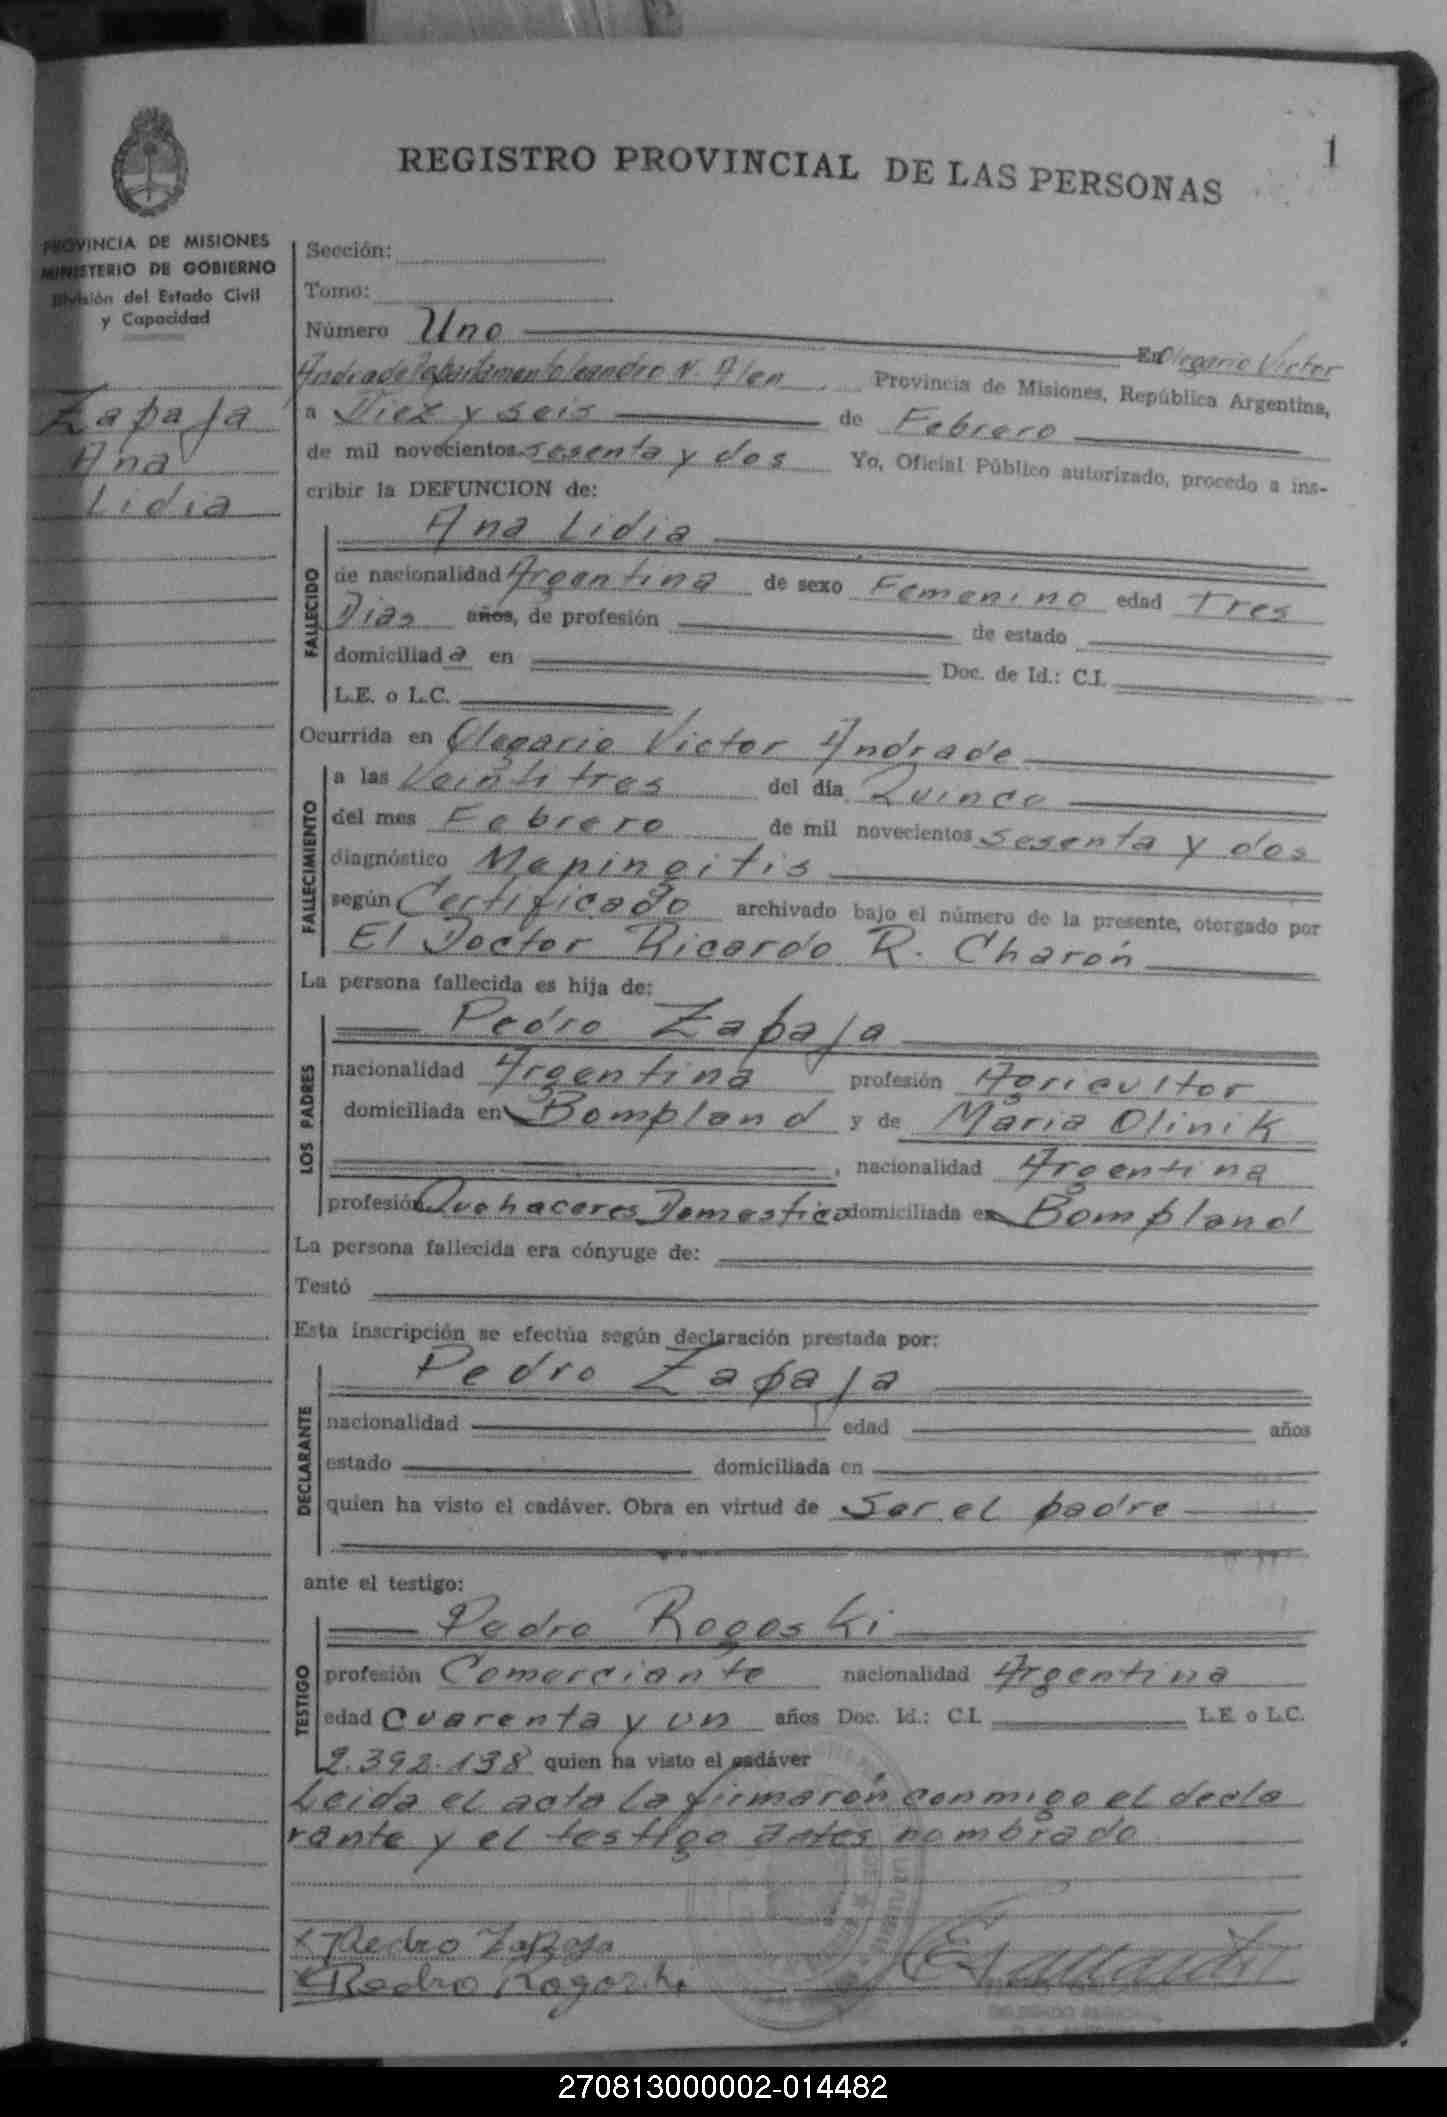 1
REGISTRO PROVINCIAL DE LAS PERSONAS
PROVINCIA DE MISIONES
MINISTERIO DE GOBIERNO
División del Estado Civil
y Capacidad
Zapaja
Ana
Lidia
Sección:
Tomo:
Número Uno En Olegario Victor
Andrade Departamento Leandro N. Alen Provincia de Misiones, República Argentina,
a Diez y seis de Febrero
de mil novecientos sesenta y dos Yo, Oficial Público autorizado, procedo a ins-
cribir la DEFUNCION de:
FALLECIDO
Ana Lidia
de nacionalidad Argentina de sexo Femenino edad Tres
Dias años, de profesión de estado
domiciliada en Doc. de Id.: C.I.
L.E. o L.C.
Ocurrida en Olegario Victor Andrade
FALLECIMIENTO
a las Veintitres del día Quince
del mes Febrero de mil novecientos sesenta y dos
diagnóstico Meningitis
según Certificado archivado bajo el número de la presente, otorgado por
El Doctor Ricardo R. Charón
La persona fallecida es hija de:
LOS PADRES
Pedro Zapaja
nacionalidad Argentina profesión Agricultor
domiciliada en Bompland y de Maria Olinik
, nacionalidad Argentina
profesión Quehaceres Domestico domiciliada en Bompland
La persona fallecida era cónyuge de:
Testó
Esta inscripción se efectúa según declaración prestada por:
DECLARANTE
Pedro Zapaja
nacionalidad edad años
estado domiciliada en
quien ha visto el cadáver. Obra en virtud de Ser el padre
ante el testigo:
TESTIGO
Pedro Rogoski
profesión Comerciante nacionalidad Argentina
edad Cuarenta y un años Doc. Id.: C.I. L.E. o L.C.
2.392.138 quien ha visto el cadáver
Leida el acta la firmaron conmigo el decla
rante y el testigo antes nombrado
x Pedro Zapaja
x Pedro Rogoski
270813000002-014482